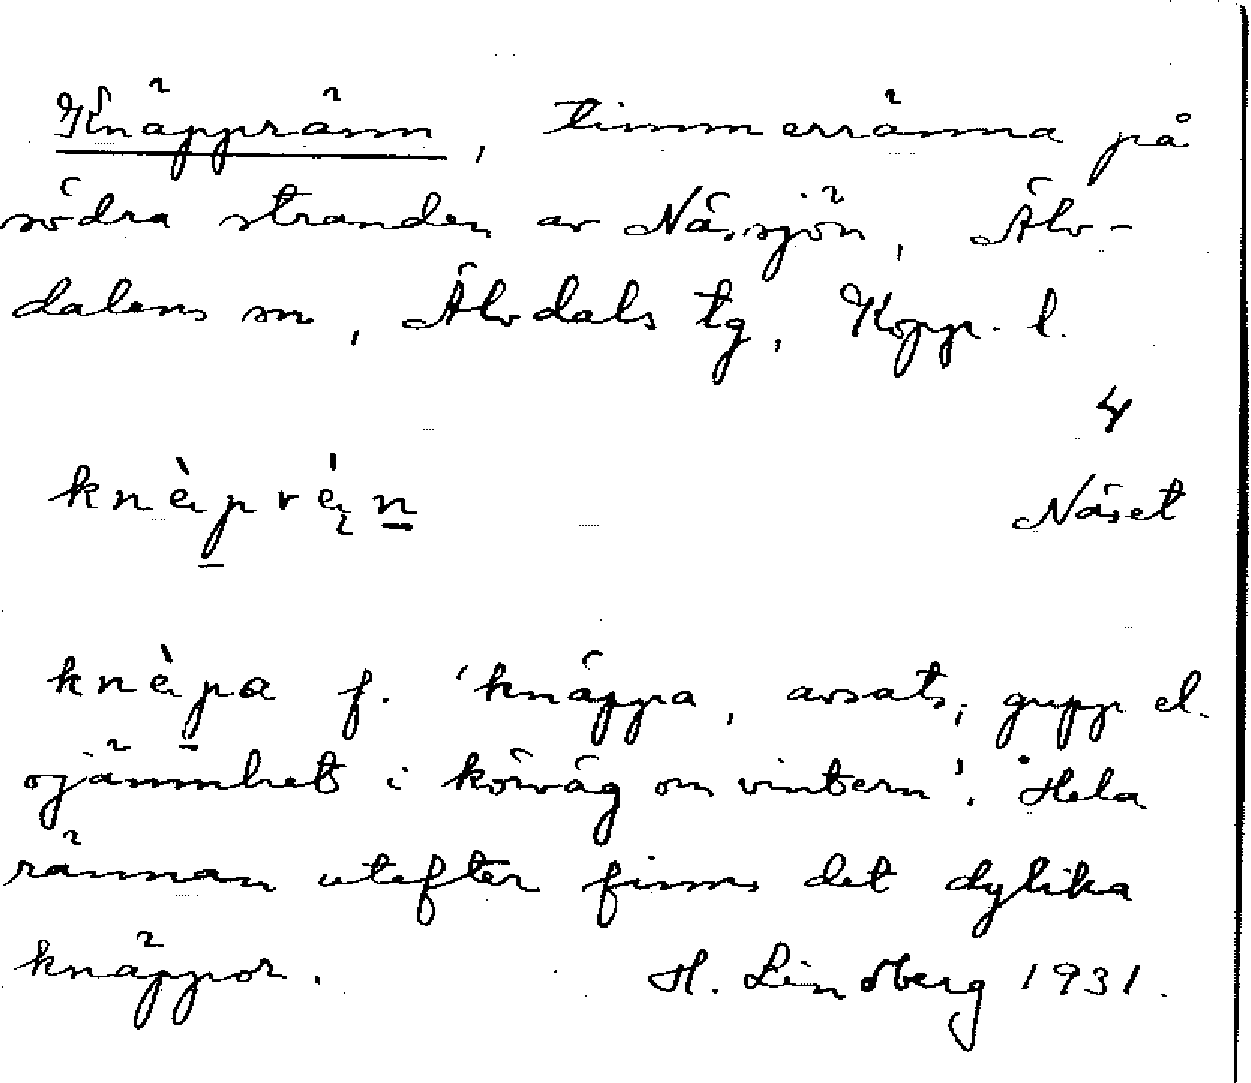 Knäppränn, timmerränna på
södra stranden av Nässjön, Älv-
dalens sn, Älvdals tg, Kopp. l.
4
knä̀pré̢n Näset
knä̀pa f. 'knäppa, avsats, gupp el.
ojämnhet i körväg om vintern'. Hela
rännan utefter finns det dylika
knäppor. H. Lindberg 1931.